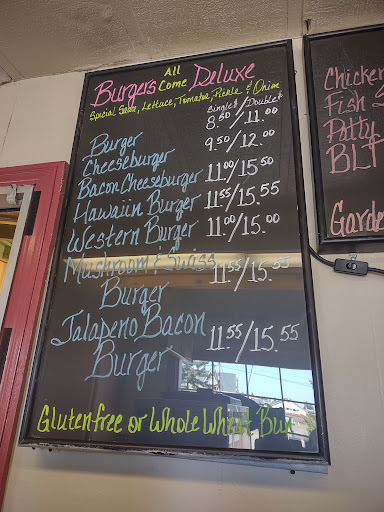 All
Burgers Come Deluxe
Special Sauce, Lettuce, Tomatoe, Pickle & Onion
Single$ / Double$
Burger 8.50/11.00
Cheeseburger 9.50/12.00
Bacon Cheeseburger 11.00/15.50
Hawaiin Burger 11.55/15.55
Western Burger 11.00/15.00
Mushroom & Swiss
Burger 11.55/15.55
Jalapeno Bacon
Burger 11.55/15.55
Gluten free or Whole Wheat Bun
Chicken
Fish
Patty
BLT